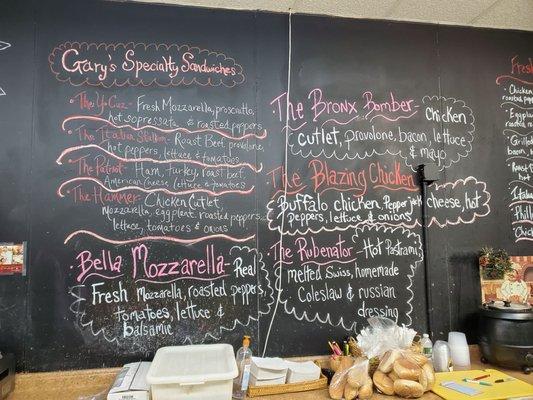 Gary's Specialty Sandwiches
The Yo Cuz - Fresh Mozzarella, prosciutto,
hot sopressata, & roasted peppers
The Italian Stallion - Roast Beef, provolone,
hot peppers, lettuce & tomatoes
The Patriot - Ham, turkey, roast beef,
American cheese, lettuce & tomatoes
The Hammer - Chicken Cutlet,
Mozzarella, eggplant, roasted peppers
lettuce, tomatoes & onions
Bella Mozzarella - Real
Fresh Mozzarella, roasted peppers
tomatoes, lettuce &
balsamic
The Bronx Bomber - Chicken
cutlet, provolone, bacon, lettuce
& mayo
The Blazing Chicken -
Buffalo chicken, Pepper Jack cheese, hot
peppers, lettuce & onions
The Rubenator - Hot Pastrami,
melted Swiss, homemade
Coleslaw & russian
dressing
Fresh
Chicken
Grilled
bacon
Roast